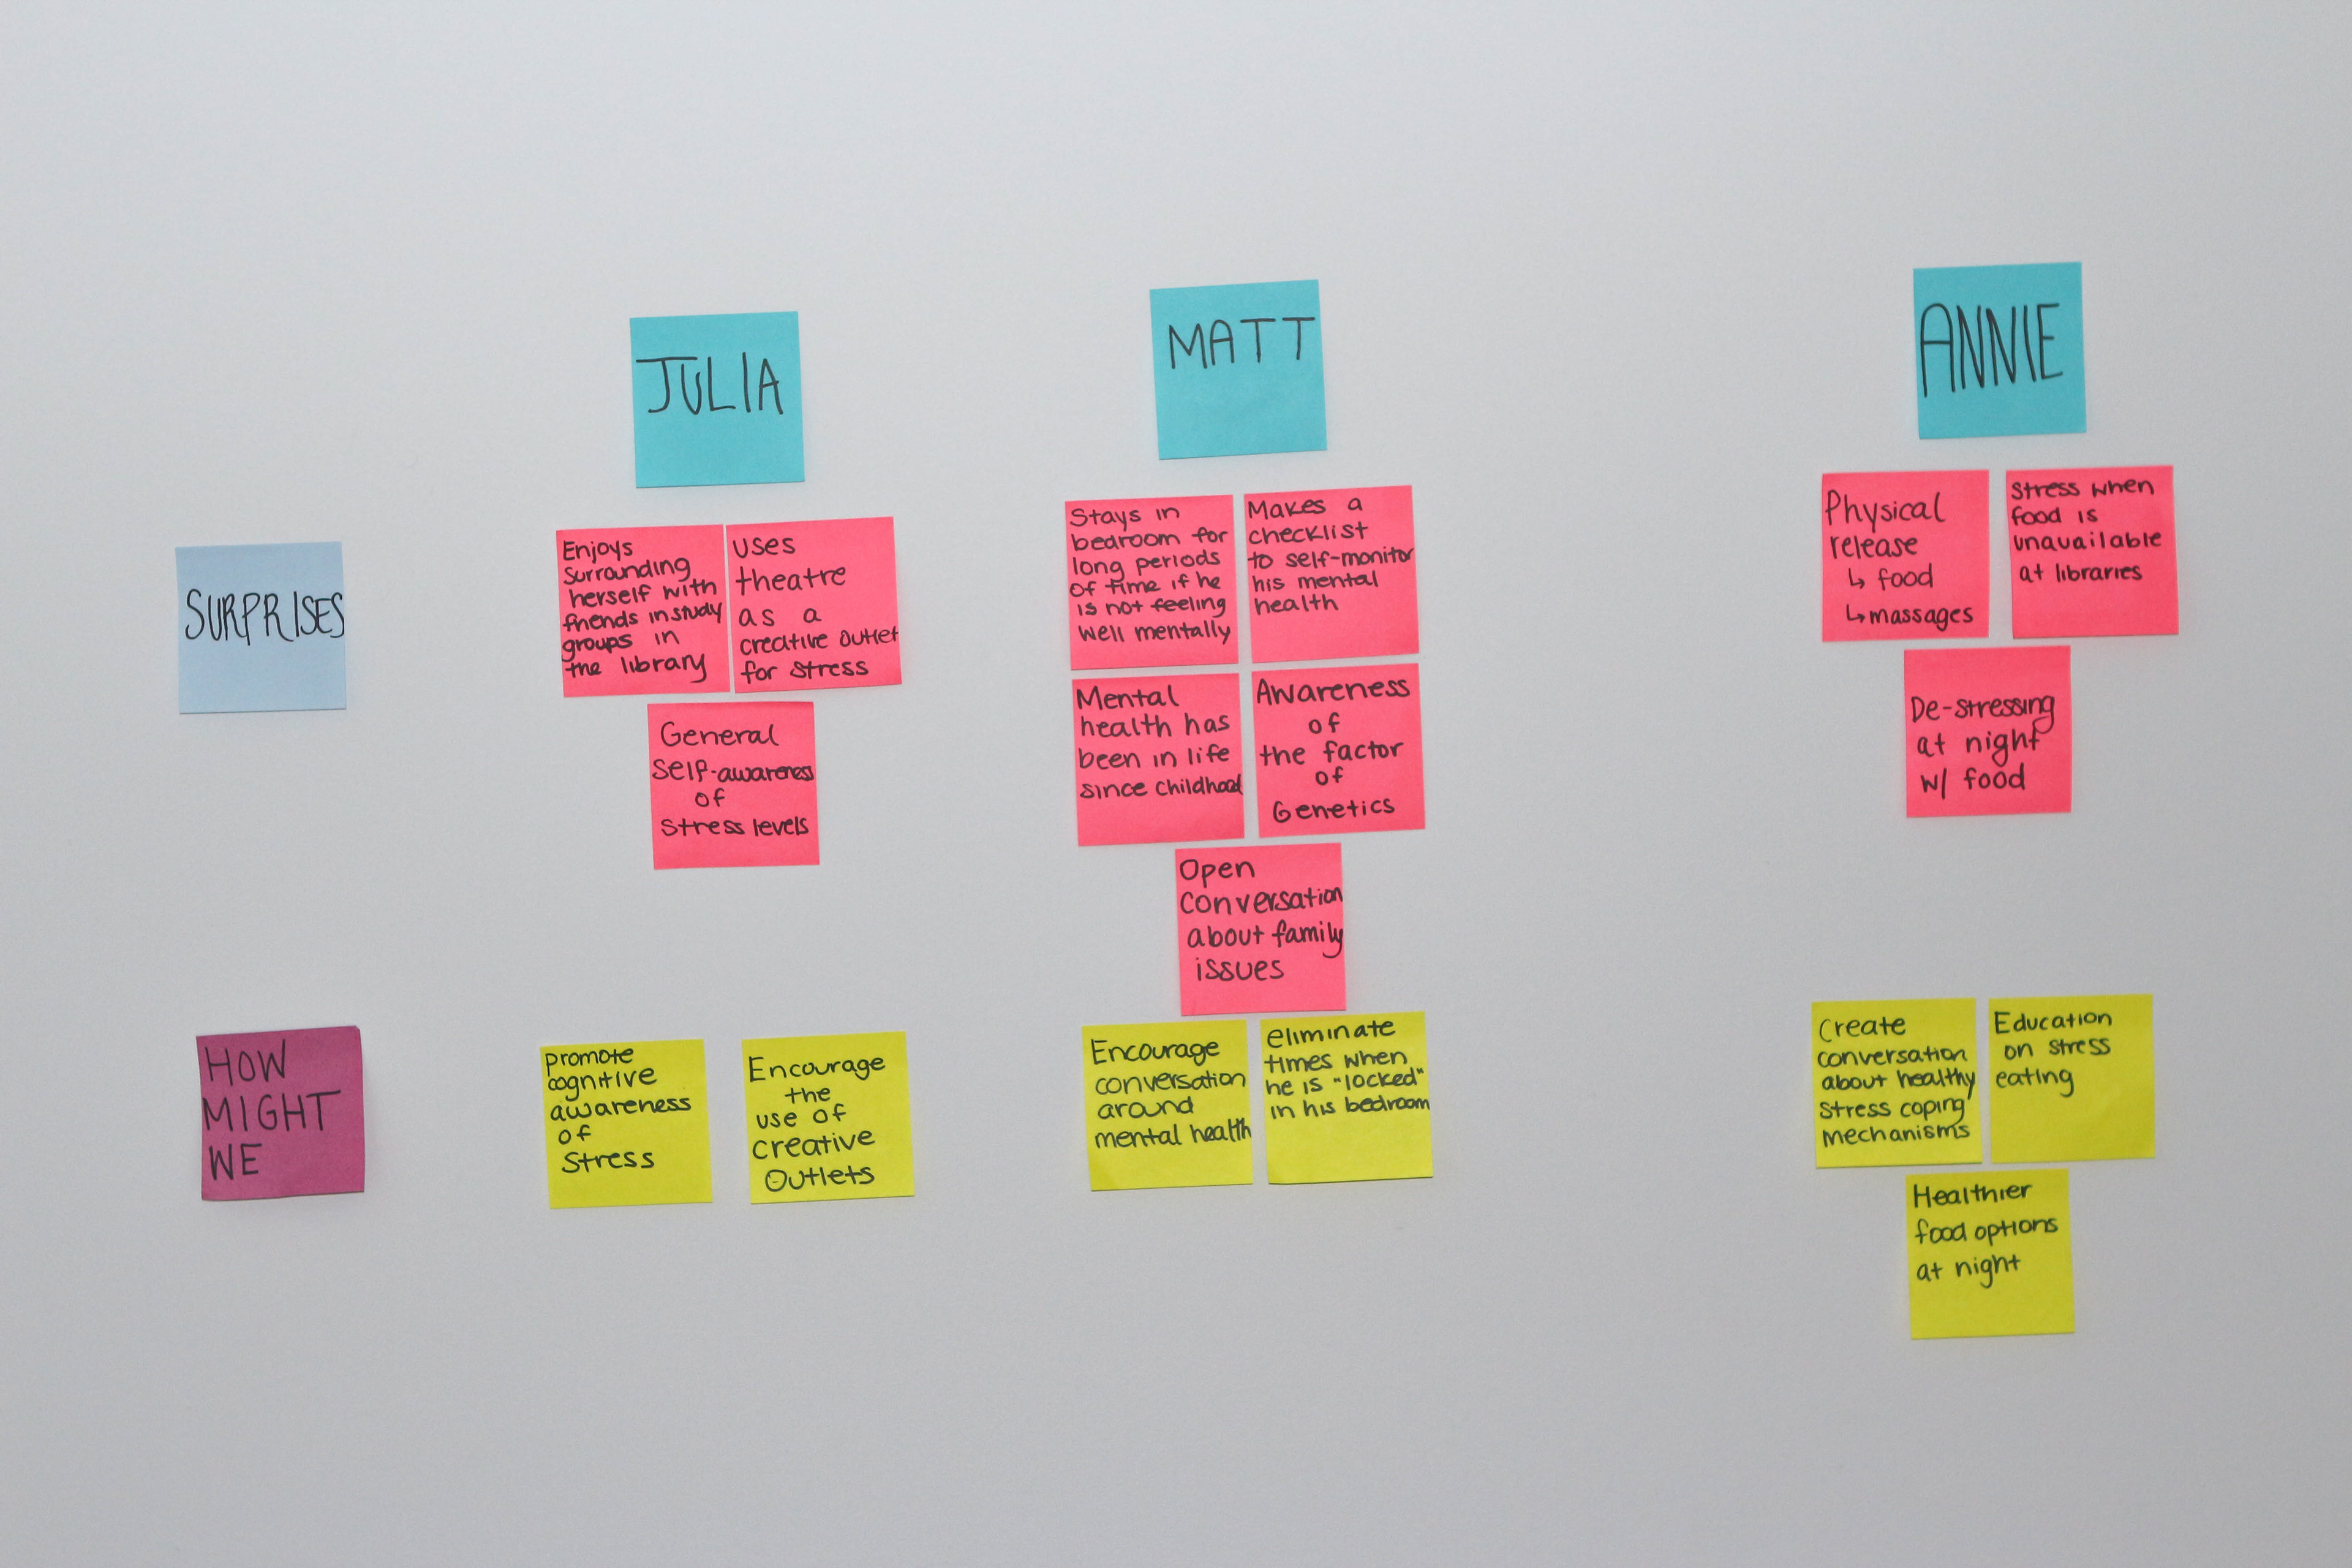 JULIA
MATT
ANNIE
SURPRISES
Enjoys
surrounding
herself with
friends in study
groups in
the library
uses
theatre
as a
creative outlet
for stress
General
self-awareness
of
stress levels
Stays in
bedroom for
long periods
of time if he
is not feeling
well mentally
Makes a
checklist
to self-monitor
his mental
health
Mental
health has
been in life
since childhood
Awareness
of
the factor
of
Genetics
Open
conversation
about family
issues
Physical
release
↳ food
↳ massages
Stress when
food is
unavailable
at libraries
De-stressing
at night
w/ food
HOW
MIGHT
WE
promote
cognitive
awareness
of
stress
Encourage
the
use of
creative
outlets
Encourage
conversation
around
mental health
eliminate
times when
he is "locked"
in his bedroom
Create
conversation
about healthy
stress coping
mechanisms
Education
on stress
eating
Healthier
food options
at night